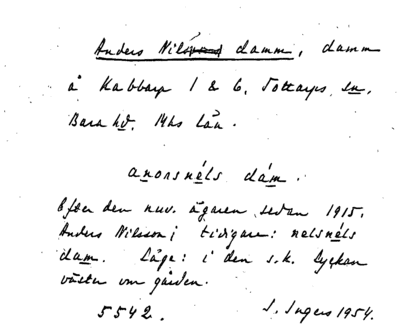 Anders Nils damm, damm
å Kabbarp 1 & 6, Tottarps sn,
Bara hd. Mhs län.
anorsnéls dám.
Efter den nuv. ägaren sedan 1915.
Anders Nilsson; tidigare: nelsnéls
dam. Läge: i den s.k. Lyckan
väster om gården.
5542. I. Ingers 1954.